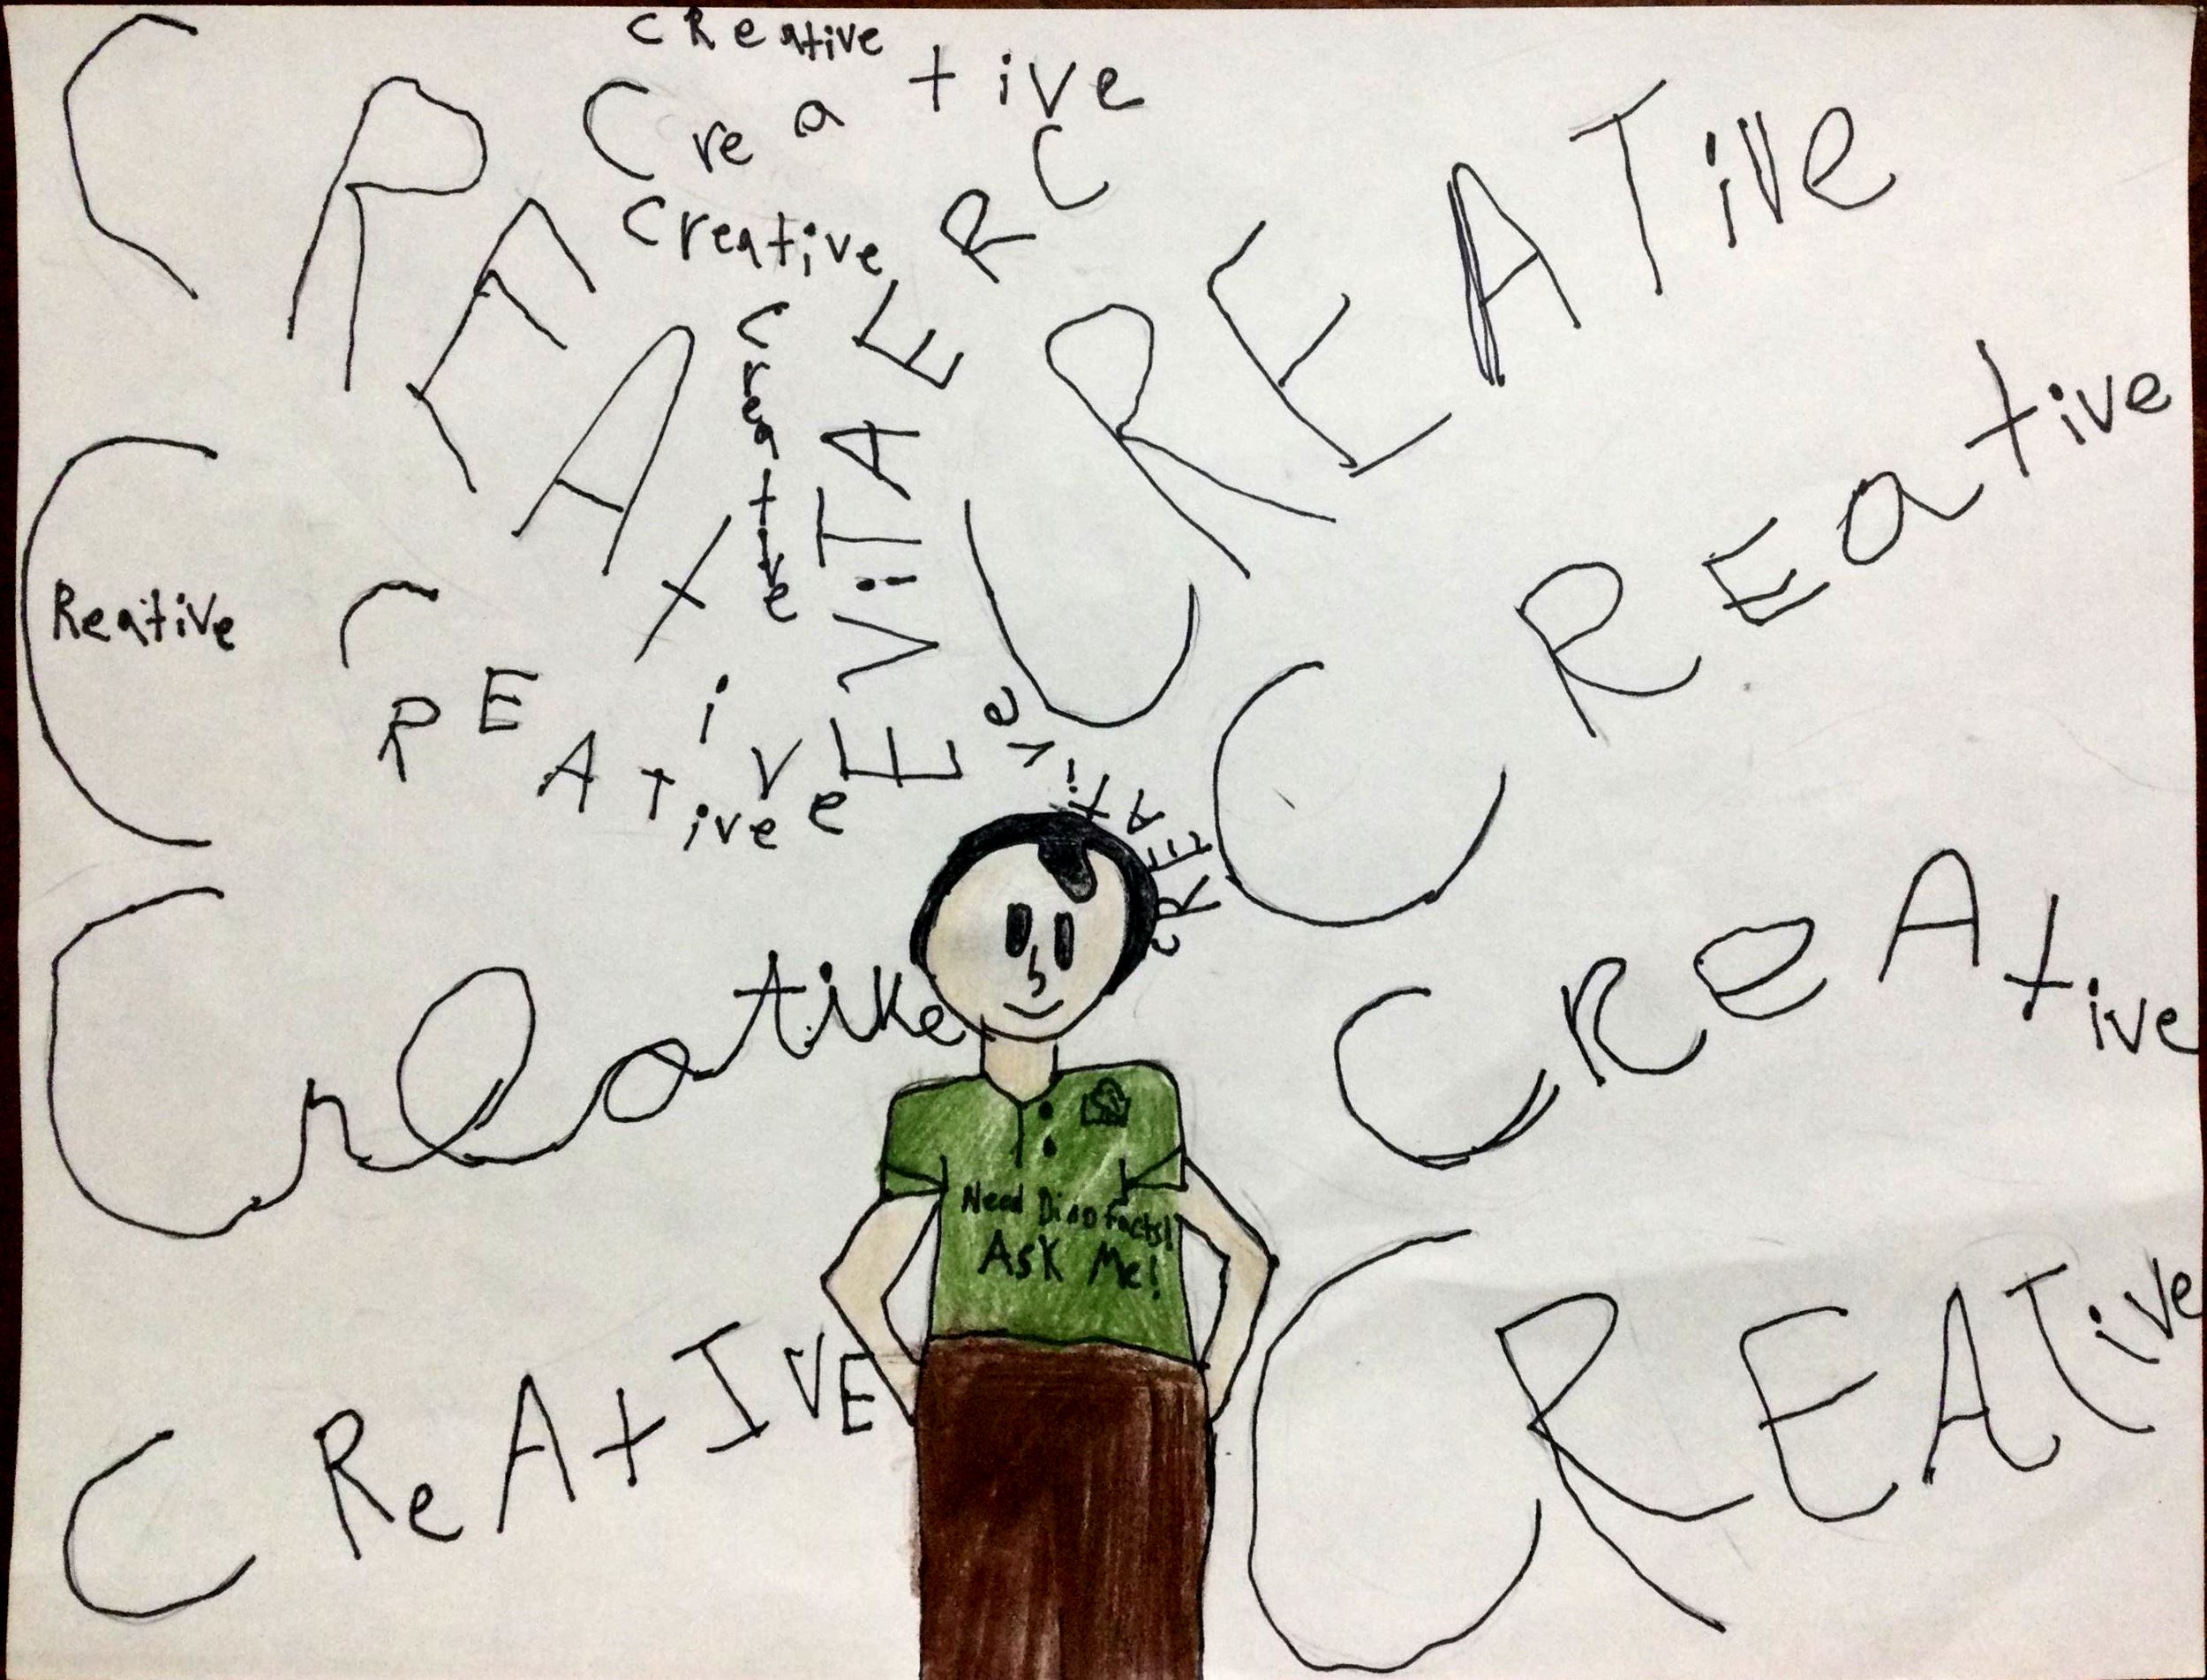 CReative
Creative
Creative
CREAtiVe
Creative
CREATiVE
CREATive
CREative
CReative
CREATive
cREAtive
Creative
CReAtive
Need Dino facts!
Ask Me!
CReAtIVE
CREATive